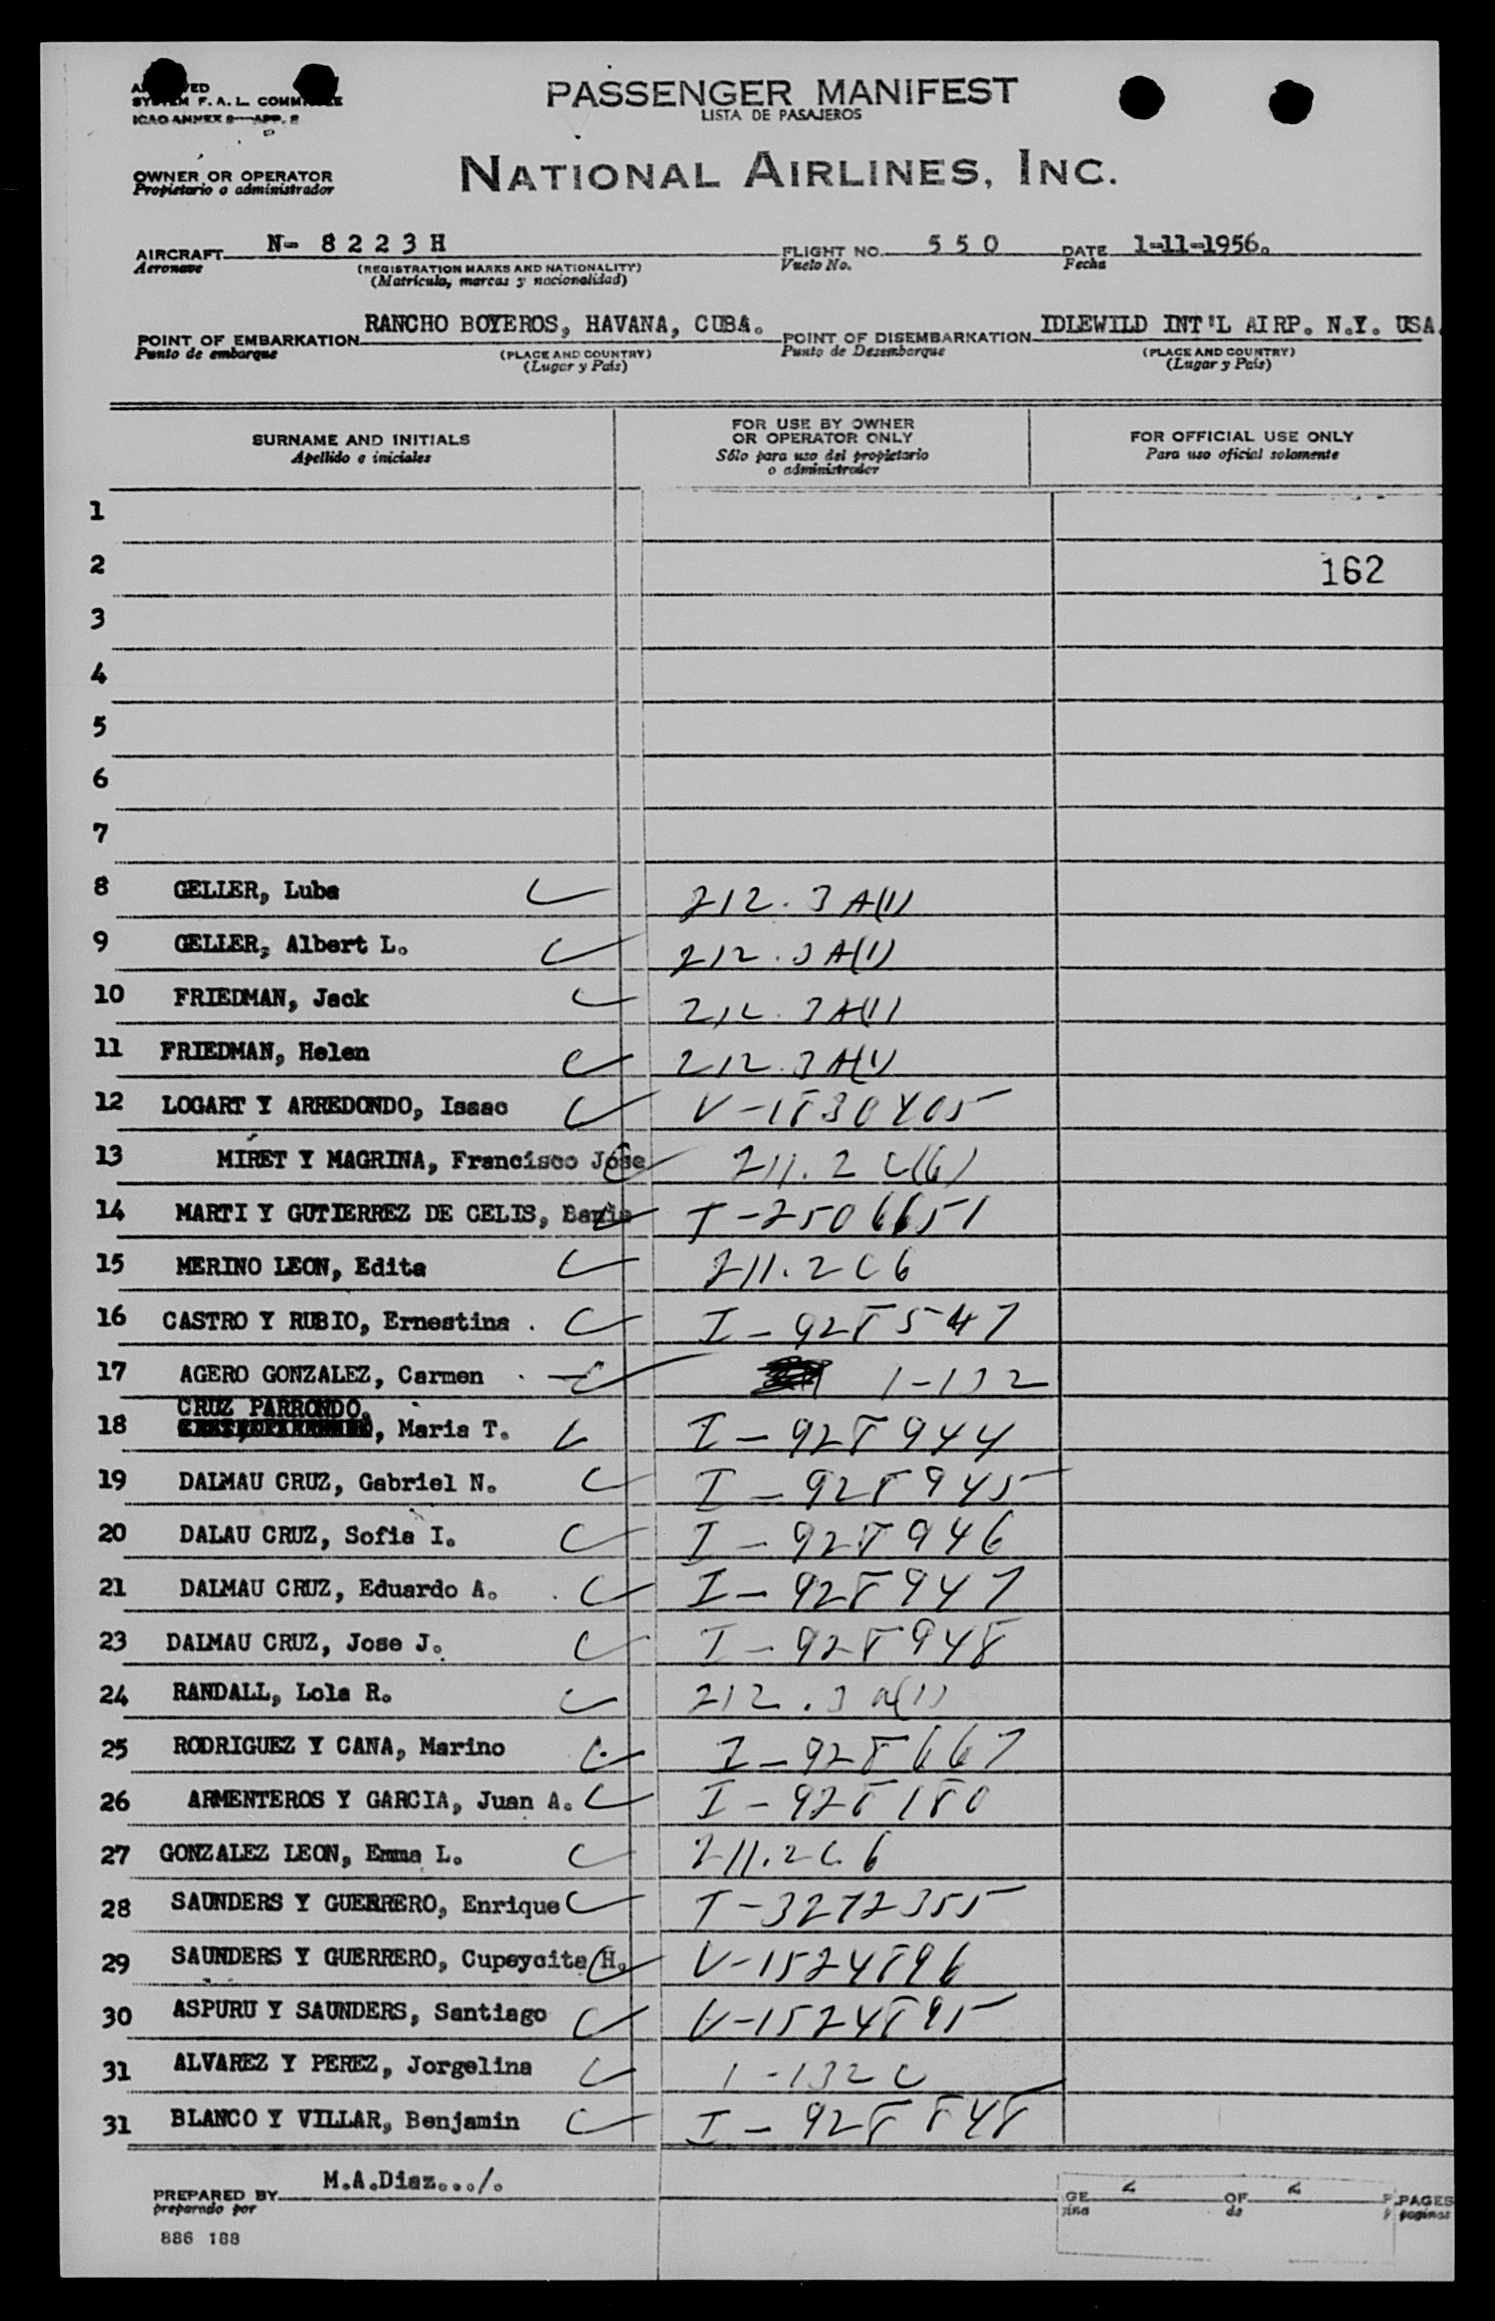 PASSENGER MANIFEST
LISTA DE PASAJEROS
SYSTEM F. A. L. COMMITTEE
ICAO ANNEX 9—APP. 2
OWNER OR OPERATOR
Propietario o administrador
NATIONAL AIRLINES, INC.
AIRCRAFT N- 8 2 2 3 H FLIGHT NO. 5 5 0 DATE 1-11-1956.
Aeronave (REGISTRATION MARKS AND NATIONALITY) Vuelo No. Fecha
(Matrícula, marcas y nacionalidad)
POINT OF EMBARKATION RANCHO BOYEROS, HAVANA, CUBA. POINT OF DISEMBARKATION IDLEWILD INT'L AIRP. N.Y. USA.
Punto de embarque (PLACE AND COUNTRY) Punto de Desembarque (PLACE AND COUNTRY)
(Lugar y País) (Lugar y País)
SURNAME AND INITIALS
Apellido e iniciales
FOR USE BY OWNER
OR OPERATOR ONLY
Sólo para uso del propietario
o administrador
FOR OFFICIAL USE ONLY
Para uso oficial solamente
1
2 162
3
4
5
6
7
8 GELLER, Luba 212.3 A(1)
9 GELLER, Albert L. 212.3 A(1)
10 FRIEDMAN, Jack 212.3 A(1)
11 FRIEDMAN, Helen 212.3 A(1)
12 LOGART Y ARREDONDO, Isaac V-1830405
13 MIRET Y MAGRINA, Francisco Jose 211.2 C(6)
14 MARTI Y GUTIERREZ DE CELIS, T-2506651
15 MERINO LEON, Edita 211.2 C 6
16 CASTRO Y RUBIO, Ernestina . I-928547
17 AGERO GONZALEZ, Carmen 1-132
CRUZ PARRONDO,
18 , Maria T. I-928944
19 DALMAU CRUZ, Gabriel N. I-928945
20 DALAU CRUZ, Sofia I. I-928946
21 DALMAU CRUZ, Eduardo A. I-928947
23 DALMAU CRUZ, Jose J. I-928948
24 RANDALL, Lola R. 212.3 A(1)
25 RODRIGUEZ Y CANA, Marino I-928667
26 ARMENTEROS Y GARCIA, Juan A. I-928180
27 GONZALEZ LEON, Emma L. 211.2 C. 6
28 SAUNDERS Y GUERRERO, Enrique T-3272355
29 SAUNDERS Y GUERRERO, Cupeycita H. V-1524896
30 ASPURU Y SAUNDERS, Santiago V-1524895
31 ALVAREZ Y PEREZ, Jorgelina 1-132 C
31 BLANCO Y VILLAR, Benjamin I-928848
PREPARED BY M.A.Diaz.../.
preparado por
GE 2 OF 2 PAGES
gina de paginas
886 188